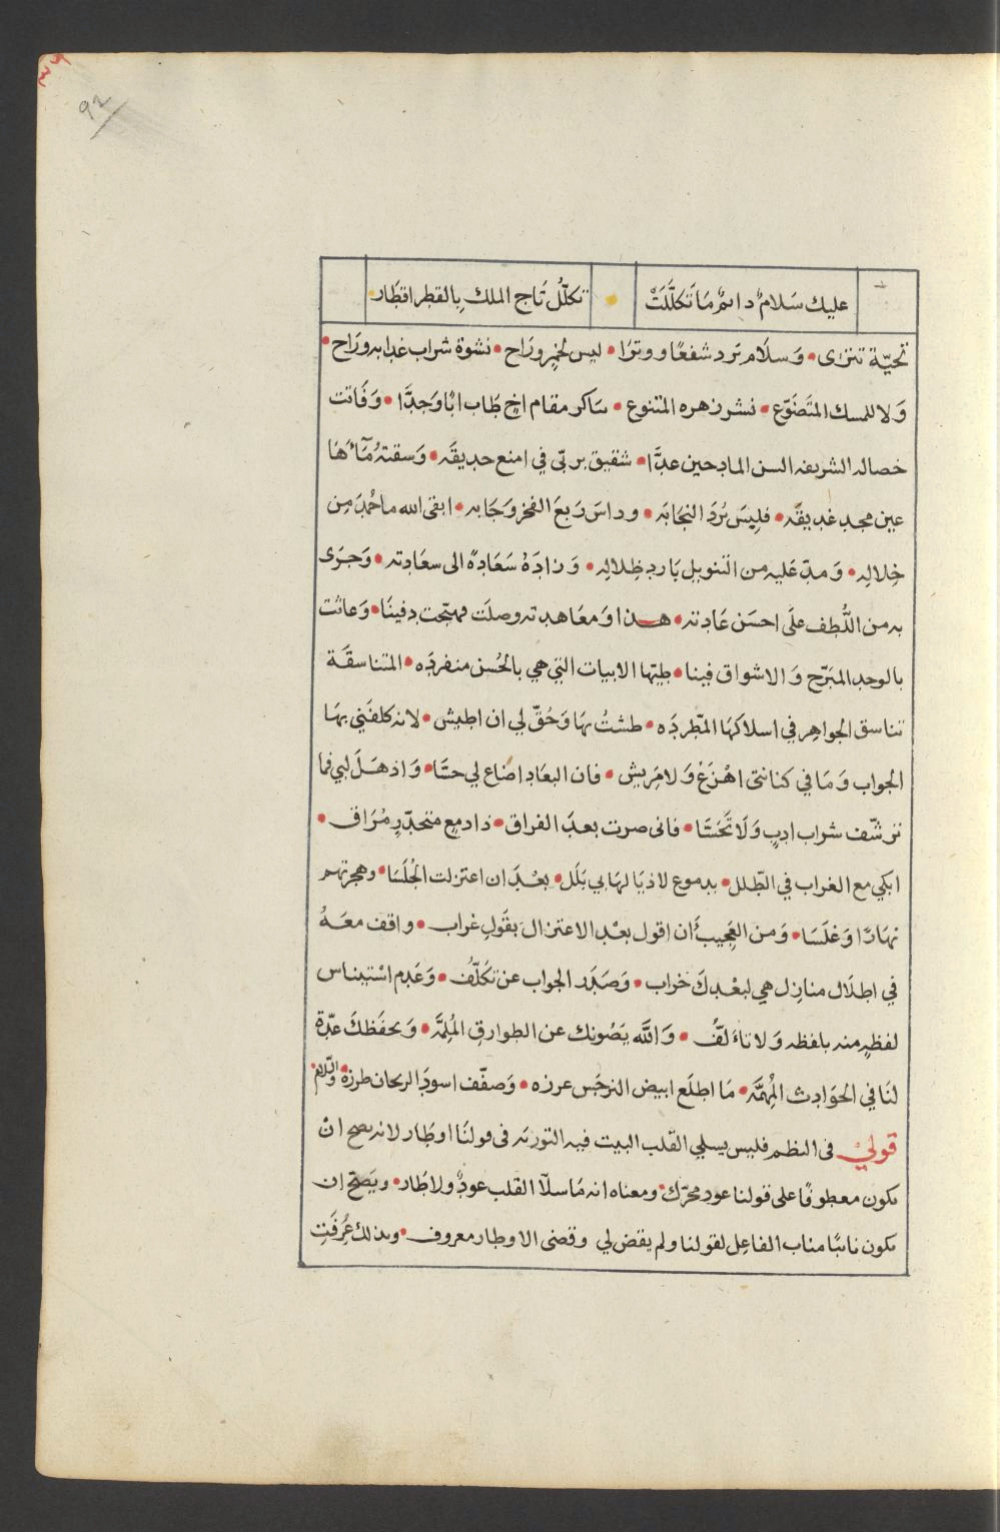 ٩٢
عليك سَلامٌ دائمٌ مَا تَكلَّلَتْ • تكلّلُ تَاج الملكِ بِالقطر اقطَار
تحيّة تترٰى • وَسلَام برد شفعًا ووترًا • ليس لخمرٍ ورَاح • نشوة شراب غدا به ورَاح •
وَلا للمسك المتَضَوّع • نشر زهره المتنوع • سَاكر مقام اخٍ طَاب ابًا وَجدَّا • وَفَاتت
خصاله الشريفه السن المادحين عدَّا • شقيق بربّى في امنع حديقَه • وَسقتهُ مَآءَهَا
عين مجدٍ غديقَه • فلِيسَ بُردَ النجَابَه • وداسَ رَبعَ الفخر وَجَابه • ابقى الله ما حُمدَ مِن
خِلالِه • وَمدّ عَليه من التنويل بَارد ظِلالِه • وَزادَهُ سَعَادةً الى سعَادته • وَجرَى
به من اللُّطف علَى احسَن عَادته • هـذا وَمعَاهدته وصلَت فهيّجت دفينَا • وَعاثت
بالوجد المبَرّح وَالاشواق فينا • طيّها الابيات التي هي بالحُسن منفردَه • المتناسقَة
تناسق الجواهِر في اسلاكهَا المطّردَه • طشتُ بهَا وَحُقّ لي ان اطيش • لانه كلفَني بهَا
الجواب وَمَا في كنانتى اهْزَعْ وَلا مَريش • فان البعَاد اضَاع لي حسَّا • وَاذهَلَ لبي فما
ترشّف شراب ادبٍ وَلَا تَحَسَّا • فانى صرت بعدَ الفراق • ذا دمعٍ متحدّرٍ مُرَاق •
ابكي مع الغراب في الطّلل • بدموع لاذيَالهَا بي بَلَل • بعْدَ ان اعتزلت الجُلَسَا • وهجرتهم
نهَارًا وَغلَسَا • وَمن العَجيبُ أن اقول بعْدِ الاعتزال بقَولِ غراب • واقف معَهُ
في اطلَال منازِل هي لبعْدكَ خراب • وَصَدَر الجواب عن تكَلّفُ • وَعَدم اسْتيناس
لفظٍ منه بلفظه وَلا تاءَلّفُ • وَاللّه يَصُونك عن الطوارقِ المُلِمَّه • وَيحفَظكَ عدّة
لنَا في الحوَادث المُهمَّه • مَا اطلَع ابيض النرجَس عرزه • وَصفّف اسودَ الريحان طرزه • والسّلام •
قوليْ فى النظم فليس يسلي القلب البيت فيه التوريَه فى قولنَا اوطَار لانه يصح انْ
يكون معطوفًا على قولنا عود محرّك • ومعناه انه مَا سلّا القلب عودٌ ولا طَار • ويَصحّ ان
يكون نائبًا مناب الفاعل لقولنا ولم يقض لي وقضى الاوطار معروف • وبذلك عُرفَتِ